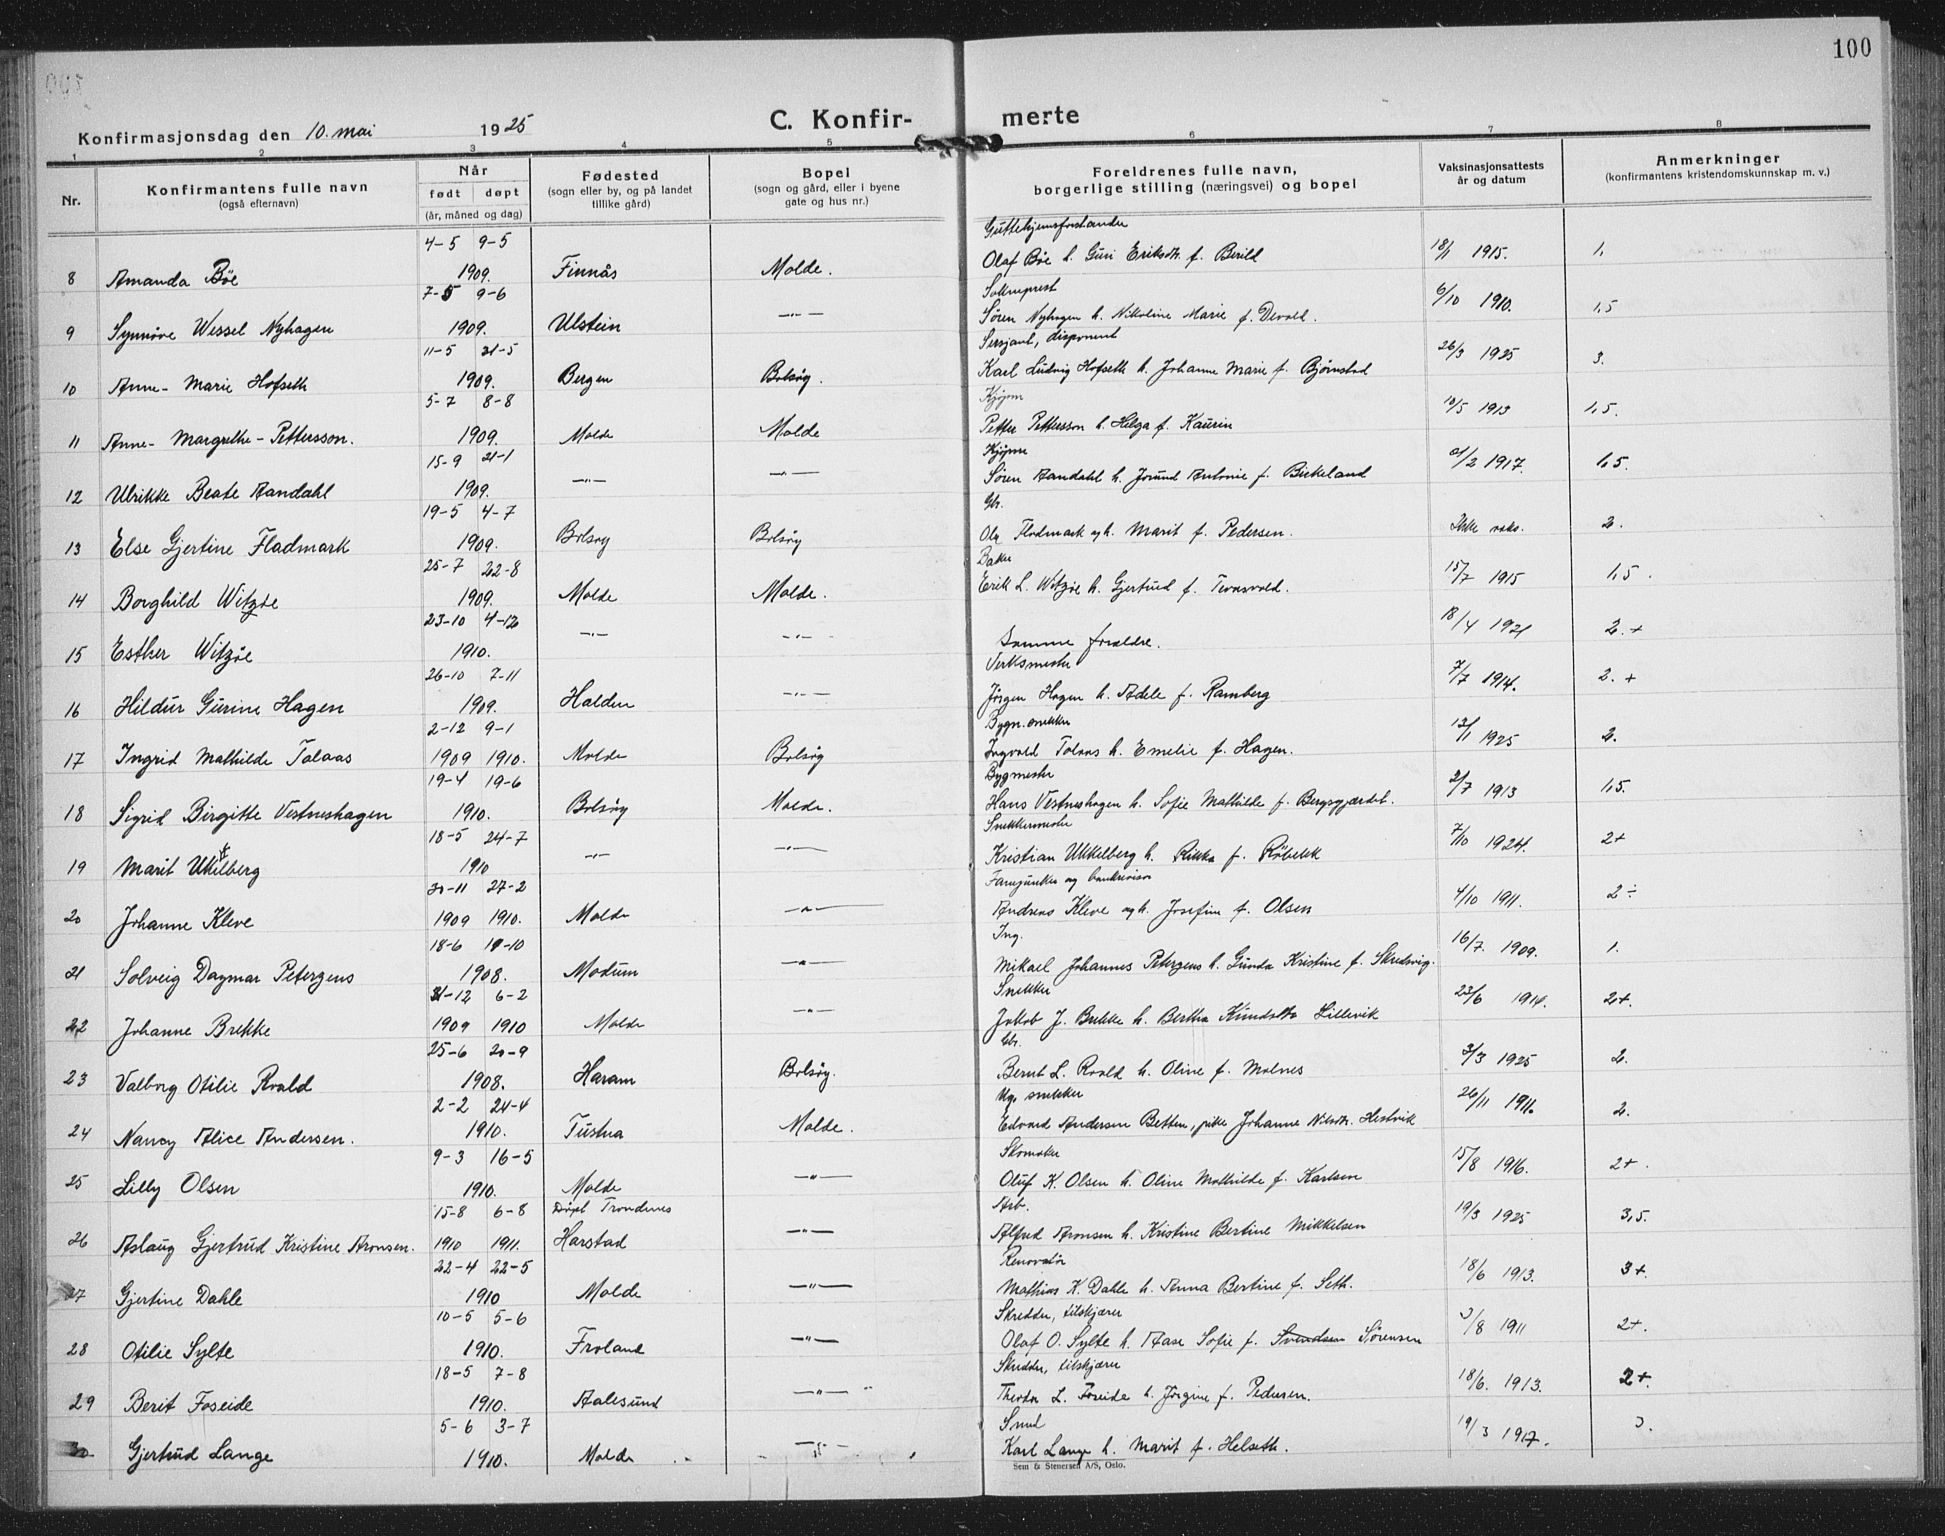 100
Konfirmasjonsdag den 10. mai 1925
C. Konfir- merte
1 2 3 4 5 6 7 8
Nr.
Konfirmantens fulle navn
(også efternavn)
Når
født døpt
(år, måned og dag)
Fødested
(sogn eller by, og på landet
tillike gård)
Bopel
(sogn og gård, eller i byene
gate og hus nr.)
Foreldrenes fulle navn,
borgerlige stilling (næringsvei) og bopel
Vaksinasjonsattests
år og datum
Anmerkninger
(konfirmantens kristendomskunnskap m. v.)
4-5 9-5 Guttehjemsforstander
8 Amanda Bøe 1909. Finnås Molde. Olaf Bøe h. Guri Eriksdtr. f. Berild 18/1 1915. 1,
7-5 9-6 Sokneprest
9 Synnøve Wessel Nyhagen 1909. Ulstein —"— Søren Nyhagen h. Nikoline Marie f. Devold. 6/10 1910. 1,5
11-5 31-5 Sersjant, disponent
10 Anne-Marie Hofseth 1909. Bergen Bolsøy. Karl Ludvig Hofseth h. Johanne Marie f. Bjørnstad 26/3 1925 3.
5-7 8-8 Kjøpm
11 Anne-Margrethe-Pettersson. 1909. Molde Molde Petter Pettersson h. Helga f. Kaurin 10/5 1913 1,5.
15-9 21-1 Kjøpm
12 Ulrikke Beate Aandahl 1909. —"— —"— Søren Aandahl h. Jorund Antonie f. Birkeland 21/2 1917. 1,5.
19-5 4-7 Gbr.
13 Else Gjertine Fladmark 1909. Bolsøy Bolsøy Ola Fladmark og h. Marit f. Pedersen. Ikke vaks. 2.
25-7 22-8 Baker
14 Borghild Witzøe 1909. Molde Molde. Erik L. Witzøe h. Gjertrud f. Tronsvold. 15/7 1915 1,5.
23-10 4-12
15 Esther Witzøe 1910. —"— —"— Samme forældre. 18/4 1921 2.+
26-10 7-11 Verksmester
16 Hildur Gurine Hagen 1909. Halden —"— Jørgen Hagen h. Adele f. Ramberg 7/7 1914. 2.+
2-12 9-1 Bygn.snekker
17 Ingrid Mathilde Tolaas 1909 1910. Molde Bolsøy Ingvald Tolaas h. Emelie f. Hagen. 13/1 1925 2.
19-4 19-6 Bygmester
18 Sigrid Birgitte Vestneshagen 1910. Bolsøy Molde. Hans Vestneshagen h. Sofie Mathilde f. Bergsgjærdet. 2/7 1913 1,5.
18-5 24-7 Snekkermester
19 Marit Ukkelberg 1910 —"— —"— Kristian Ukkelberg h. Rikka f. Røbekk 7/10 1924. 2+
30-11 27-2 Fanejunker og bankrevisor
20 Johanne Kleve 1909 1910. Molde —"— Andreas Kleve og h. Josefine f. Olsen 4/10 1911. 2÷
18-6 11-10 Ing.
21 Solveig Dagmar Petergens 1908. Modum —"— Mikael Johannes Petergens h. Gunda Kristine f. Skredsvig. 16/7. 1909. 1.
31-12 6-2 Snekker
22 Johanne Brekke 1909 1910 Molde —"— Jakob J. Brekke h. Bertha Knudsdtr Lillevik 23/6 1914. 2+.
25-6 20-9 Gbr.
23 Valborg Otilie Roald 1908. Haram Bolsøy. Bernt L. Roald h. Oline f. Molnes 3/3 1925 2.
2-2 24-4 Ug. snekker
24 Nancy Alice Andersen. 1910. Tustna Molde. Edvard Andersen Betten, pike Johanne Nilsdtr. Hestvik 26/11 1911. 2.
9-3 16-5 Skomaker
25 Lilly Olsen 1910. Molde —"— Oluf K. Olsen h. Oline Mathilde f. Karlsen 15/8 1916. 2+.
15-8 6-8 Døpt Trondenes Arb.
26 Aslaug Gjertrud Kristine Aronsen. 1910 1911. Harstad —"— Alfred Aronsen h. Kristine Bertine Mikkelsen 19/3 1925 3,5.
22-4 22-5 Renovatør
27 Gjertine Dahle 1910 Molde —"— Mathias K. Dahle h. Anna Bertine f. Seth. 18/6 1913. 3+.
10-5 5-6 Skredder, tilskjærer
28 Otilie Sylte 1910. Froland —"— Olaf O. Sylte h. Aase Sofie f. Svendsen Sørensen /8 1911 2+.
18-5 7-8 Skredder, tilskjærer
29 Berit Foseide 1910. Aalesund —"— Theodor L. Foseide h. Jørgine f. Pedersen. 18/6. 1913. 2+.
5-6 3-7 Smed
30 Gjertrud Lange 1910. Molde —"— Karl Lange h. Marit f. Helseth. 19/3 1917. 3.
Sem & Stenersen A/S, Oslo.